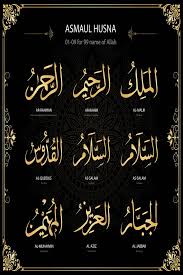 ASMAUL HUSNA
01-09 for 99 name of Allah
الرَّحْمٰنُ الرَّحِيْمُ الْمَلِكُ
AR RAHMAN AR RAHIM AL MALIK
الْقُدُّوْسُ السَّلَامُ السَّلَامُ
AL QUDDUS AS SALAM AS SALAM
الْمُهَيْمِنُ الْعَزِيْزُ الْجَبَّارُ
AL MUHAIMIN AL AZIZ AL JABBAR